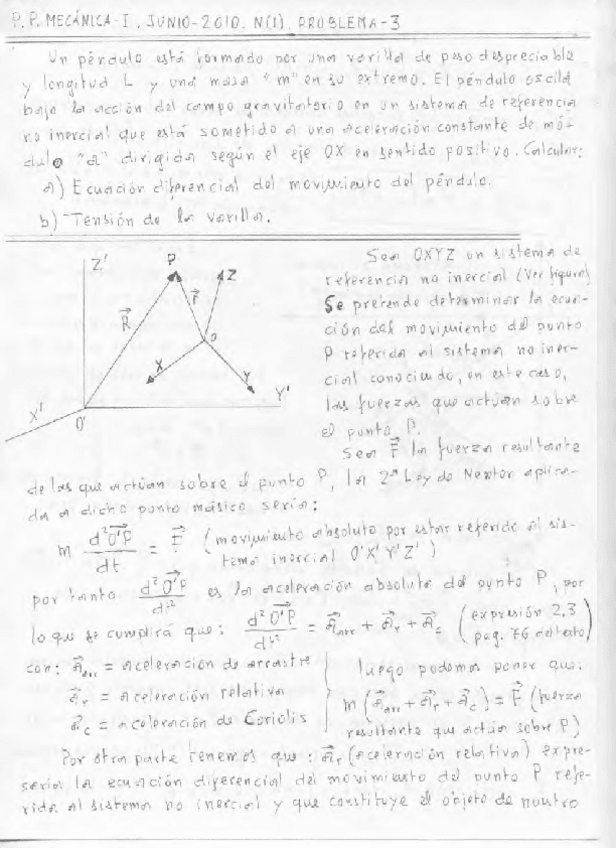 P.P. MECÁNICA-I. JUNIO-2010. N(1). PROBLEMA-3
Un péndulo está formado por una varilla de peso despreciable
y longitud L y una masa "m" en su extremo. El péndulo oscila
bajo la acción del campo gravitatorio en un sistema de referencia
no inercial que está sometido a una aceleración constante de mó-
dulo "a" dirigida según el eje OX en sentido positivo. Calcular:
a) Ecuación diferencial del movimiento del péndulo.
b) Tensión de la varilla.
Z' P Z
R⃗ r⃗
O
X Y
X' O' Y'
Sea OXYZ un sistema de
referencia no inercial (Ver figura)
Se pretende determinar la ecua-
ción del movimiento del punto
P referida al sistema no iner-
cial conociendo, en este caso,
las fuerzas que actúan sobre
el punto P.
Sea F⃗ la fuerza resultante
de las que actúan sobre el punto P, la 2ª Ley de Newton aplica-
da a dicho punto másico sería:
m d²O'P⃗/dt = F⃗ (movimiento absoluto por estar referido al sis-
tema inercial O'X'Y'Z')
por tanto d²O'P⃗/dt² es la aceleración absoluta del punto P, por
lo que se cumplirá que: d²O'P⃗/dt² = a⃗arr + a⃗r + a⃗c (expresión 2.3
pag. 76 del texto)
con: a⃗arr = aceleración de arrastre
a⃗r = aceleración relativa
a⃗c = aceleración de Coriolis
luego podemos poner que:
m(a⃗arr + a⃗r + a⃗c) = F⃗ (fuerza
resultante que actúa sobre P)
Por otra parte tenemos que: a⃗r (aceleración relativa) expre-
saría la ecuación diferencial del movimiento del punto P refe-
rida al sistema no inercial y que constituye el objeto de nuestro